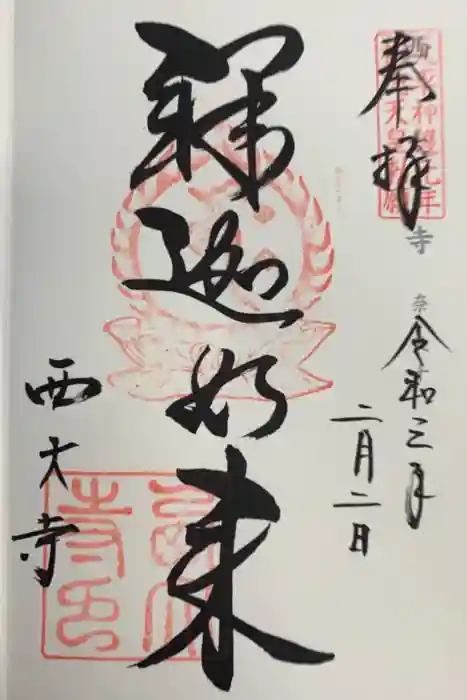 奉拝
令和三年
二月二日
釋迦如来
西大寺